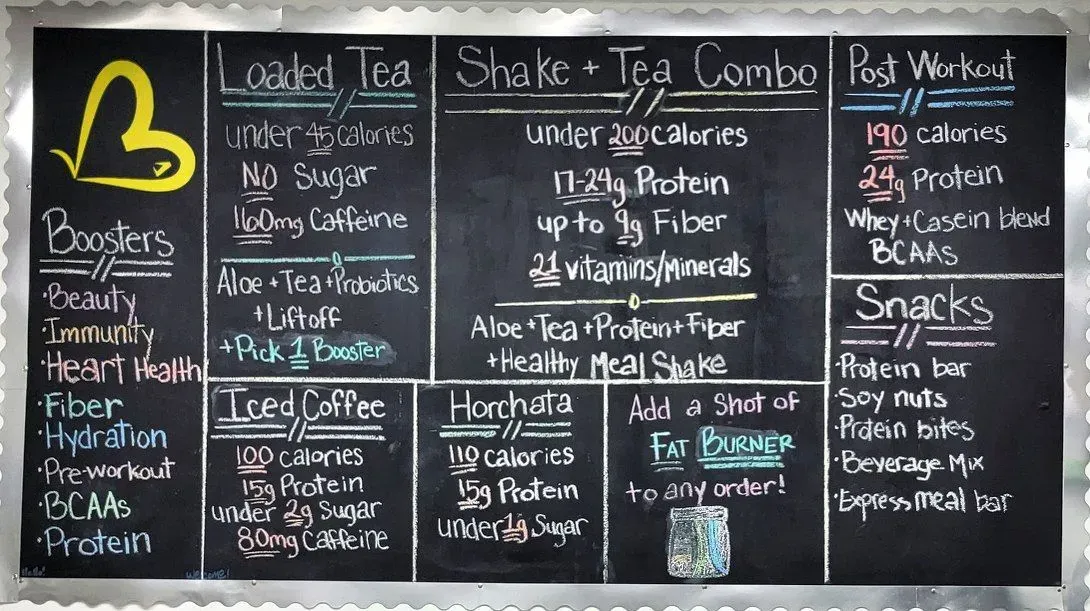 Boosters
·Beauty
·Immunity
·Heart Health
·Fiber
·Hydration
·Pre-workout
·BCAAs
·Protein
Hello!
welcome!
Loaded Tea
under 45 calories
NO Sugar
160mg Caffeine
Aloe+Tea+Probiotics
+Liftoff
+Pick 1 Booster
Shake + Tea Combo
under 200 calories
17-24g Protein
up to 9g Fiber
21 vitamins/Minerals
Aloe+Tea+Protein+Fiber
+Healthy Meal Shake
Post Workout
190 calories
24g Protein
Whey+Casein blend
BCAAs
Snacks
·Protein bar
·Soy nuts
·Protein bites
·Beverage Mix
·Express meal bar
Iced Coffee
100 calories
15g Protein
under 2g Sugar
80mg Caffeine
Horchata
110 calories
15g Protein
under 1g Sugar
Add a Shot of
FAT BURNER
to any order!